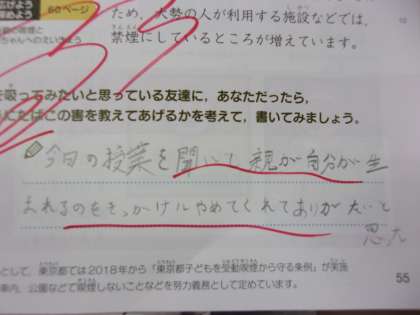 60ページ
ため、大勢の人が利用する施設などでは、
禁煙にしているところが増えています。
の喫煙と
ちゃんへのえいきょう
を吸ってみたいと思っている友達に、あなただったら、
にたばこの害を教えてあげるかを考えて、書いてみましょう。
今日の授業を聞いて親が自分が生
まれるのをきっかけにやめてくれてありがたいと
思った
として、東京都では2018年から「東京都子どもを受動喫煙から守る条例」が実施
車内、公園などで喫煙しないことなどを努力義務として定めています。
55